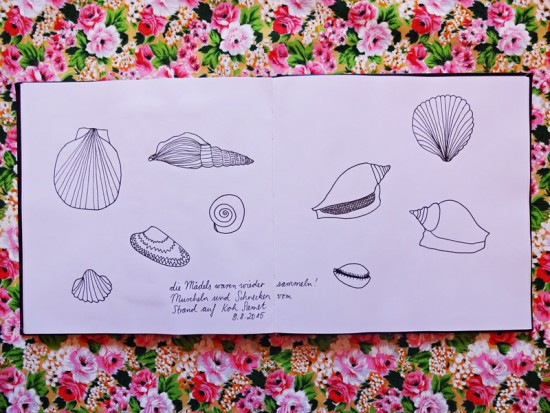 die Mädels waren wieder sammeln!
Muscheln und Schnecken vom
Strand auf Koh Samet
8.8.2015